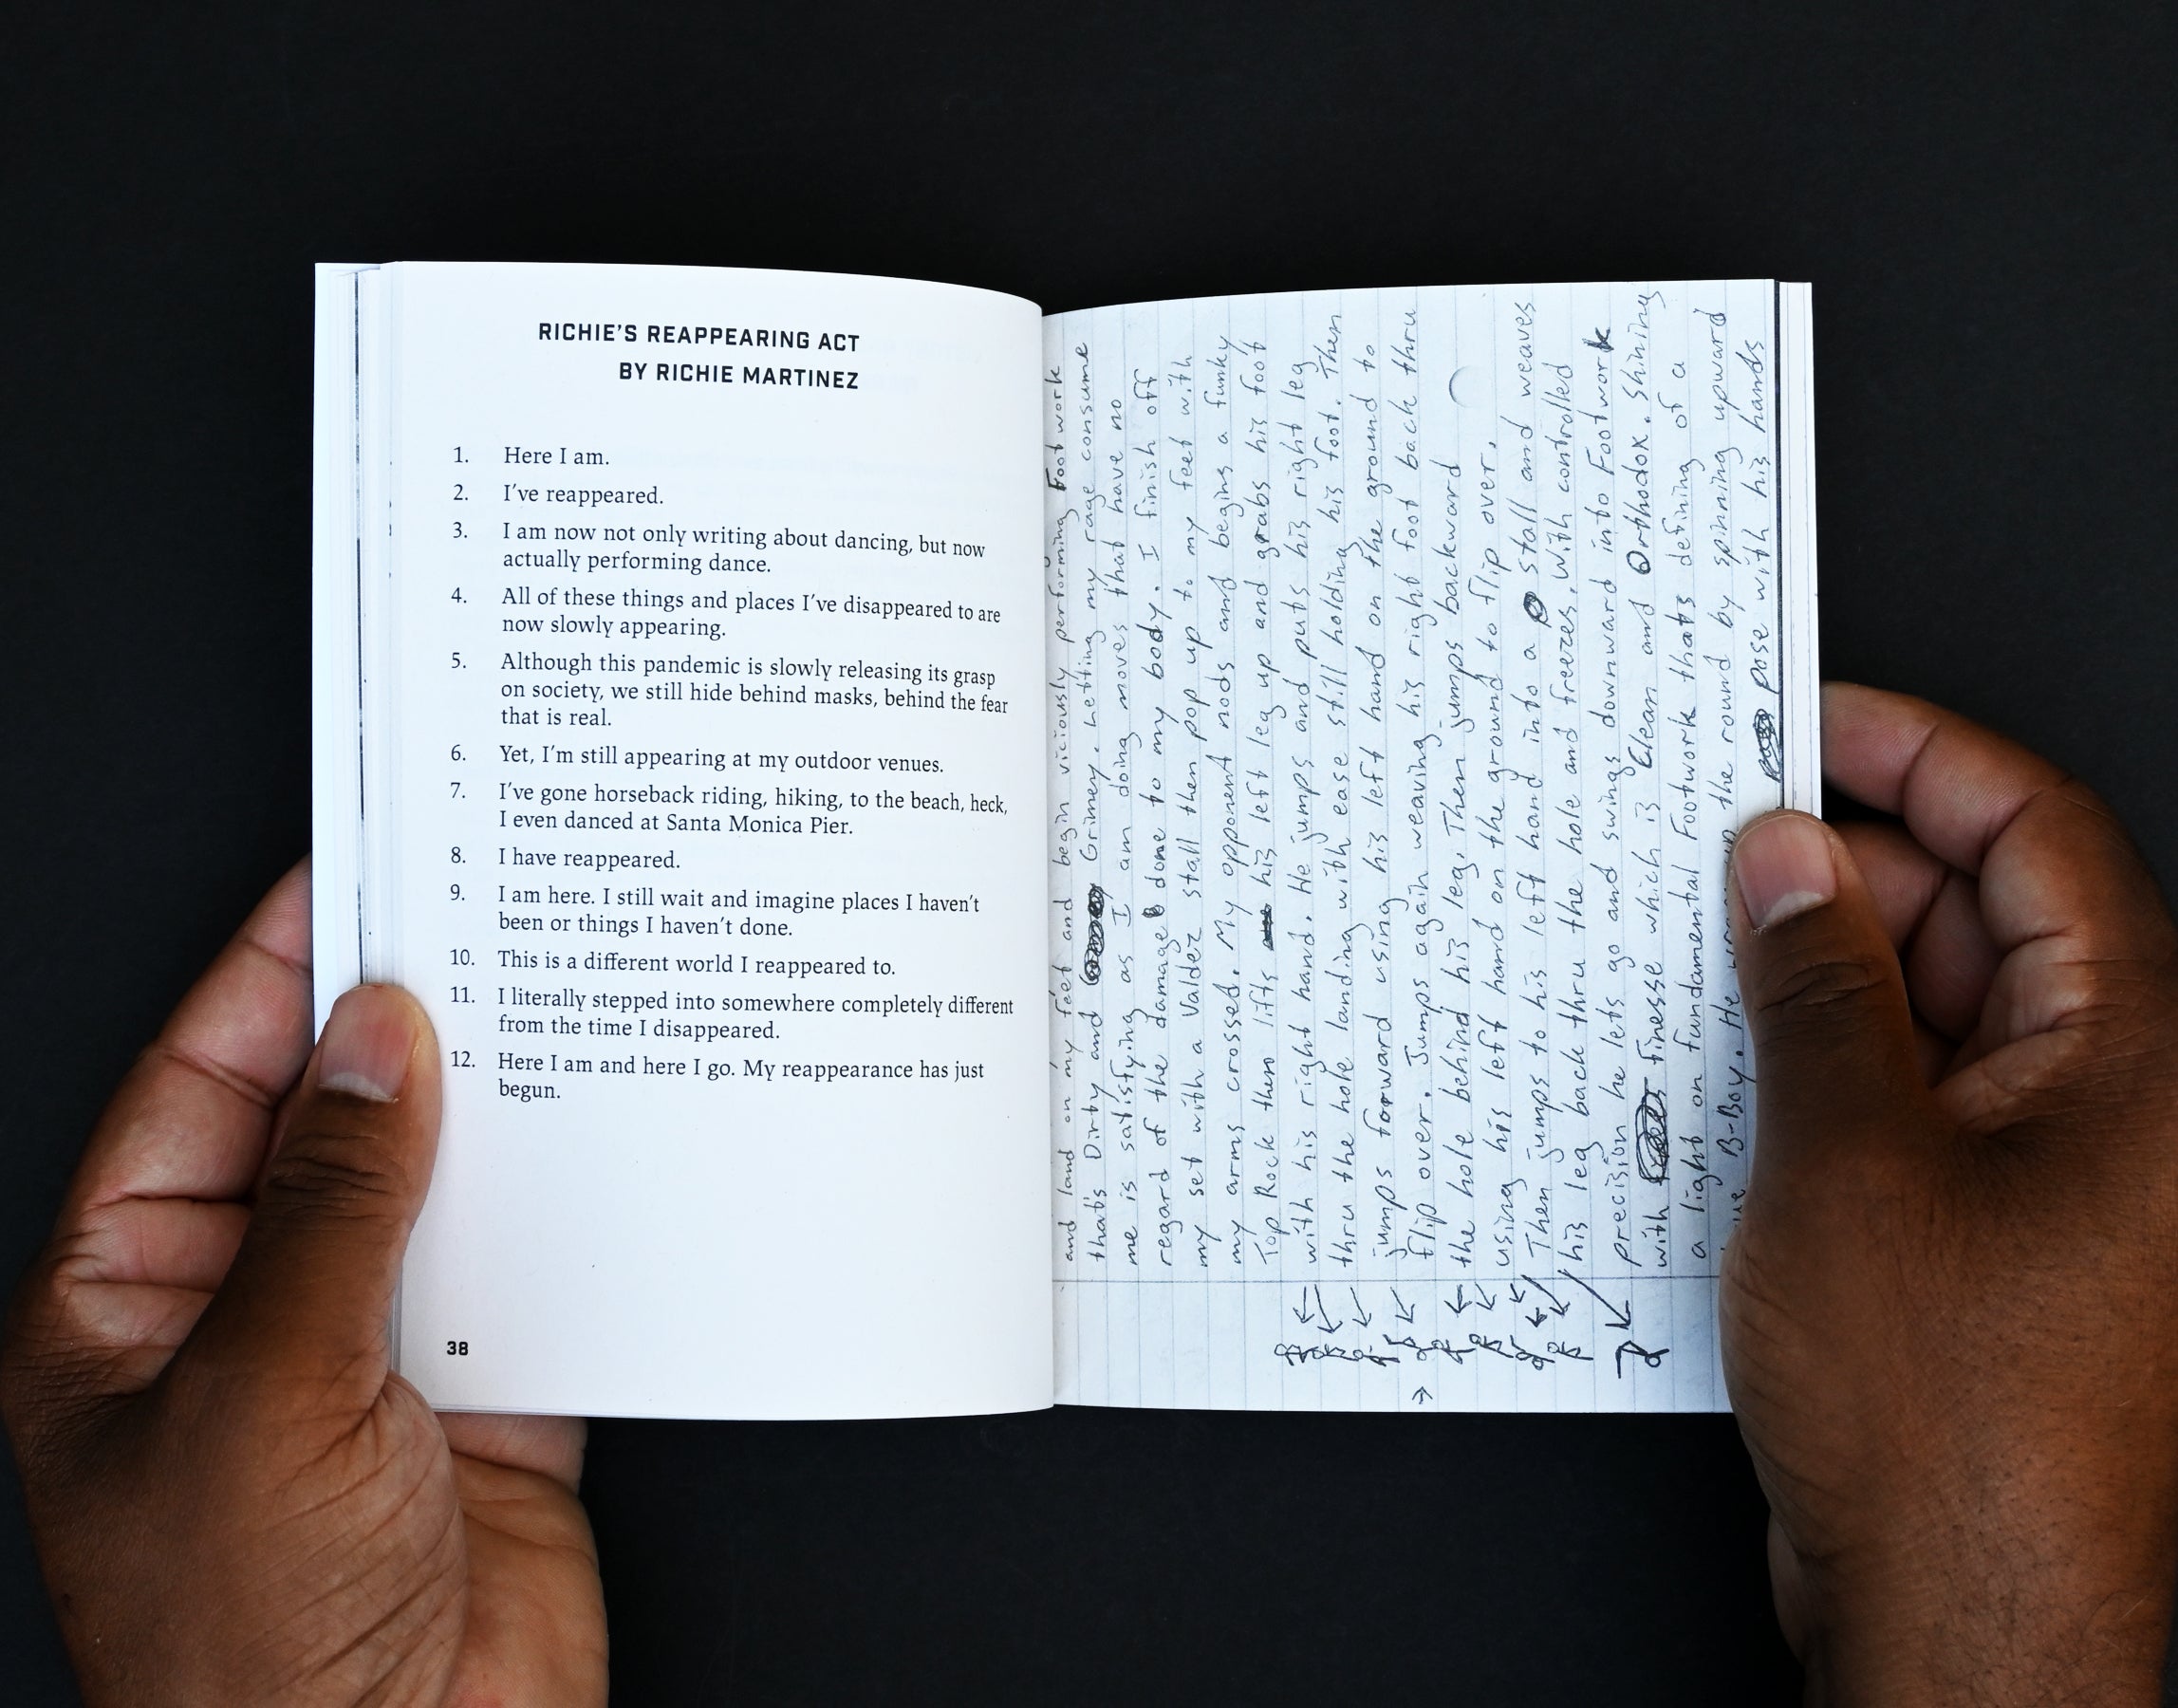 RICHIE'S REAPPEARING ACT
BY RICHIE MARTINEZ
1. Here I am.
2. I've reappeared.
3. I am now not only writing about dancing, but now
actually performing dance.
4. All of these things and places I've disappeared to are
now slowly appearing.
5. Although this pandemic is slowly releasing its grasp
on society, we still hide behind masks, behind the fear
that is real.
6. Yet, I'm still appearing at my outdoor venues.
7. I've gone horseback riding, hiking, to the beach, heck,
I even danced at Santa Monica Pier.
8. I have reappeared.
9. I am here. I still wait and imagine places I haven't
been or things I haven't done.
10. This is a different world I reappeared to.
11. I literally stepped into somewhere completely different
from the time I disappeared.
12. Here I am and here I go. My reappearance has just
begun.
38
and land on my feet and begin viciously performing Footwork
that's Dirty and Grimey. Letting my rage consume
me is satisfying as I am doing moves that have no
regard of the damage done to my body. I finish off
my set with a Valdez stall then pop up to my feet with
my arms crossed. My opponent nods and begins a funky
Top Rock then lifts his left leg up and grabs his foot
with his right hand. He jumps and puts his right leg
thru the hole landing with ease still holding his foot. Then
jumps forward using his left hand on the ground to
flip over. Jumps again weaving his right foot back thru
the hole behind his leg. Then jumps backward
using his left hand on the ground to flip over.
Then jumps to his left hand into a stall and weaves
his leg back thru the hole and freezes. With controlled
precision he lets go and swings downward into Footwork
with finesse which is Clean and Orthodox. Shining
a light on fundamental Footwork thats defining of a
B-Boy. He the round by spinning upward
pose with his hands